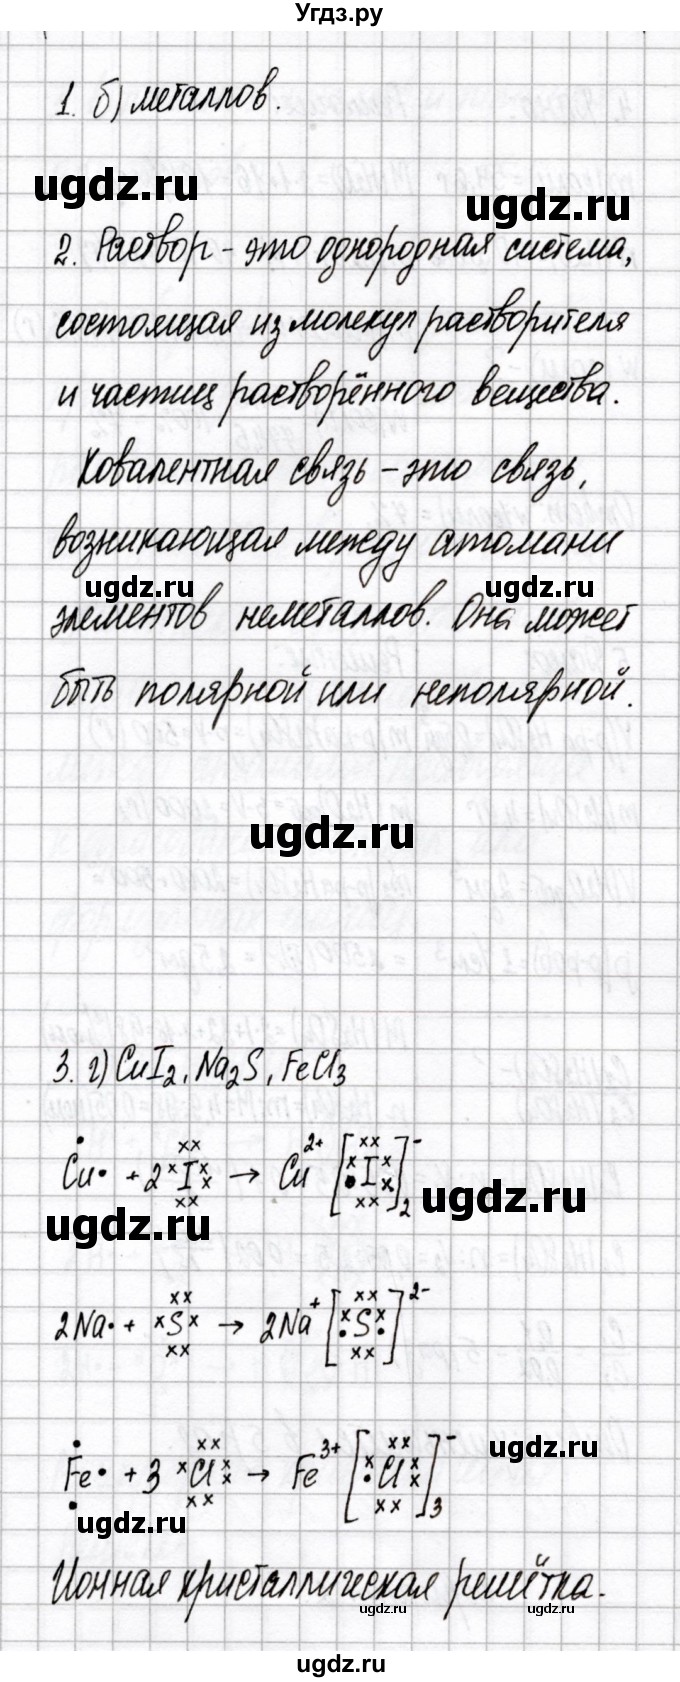 Угдз.ру
1. б) металлов.
ugdz.ru
ugdz.ru
2. Раствор - это однородная система,
состоящая из молекул растворителя
и частиц растворённого вещества.
Ковалентная связь - это связь,
возникающая между атомами
ugdz.ru
ugdz.ru
элементов неметаллов. Она может
быть полярной или неполярной.
ugdz.ru
3. г) CuI₂, Na₂S, FeCl₃
Cu + 2 I → Cu²⁺ [I]₂⁻
ugdz.ru
ugdz.ru
2Na· + S → 2Na⁺ [S]²⁻
Fe + 3 Cl → Fe³⁺ [Cl]₃⁻
ugdz.ru
ugdz.ru
Ионная кристаллическая решётка.
ugdz.ru
ugdz.ru
ugdz.ru